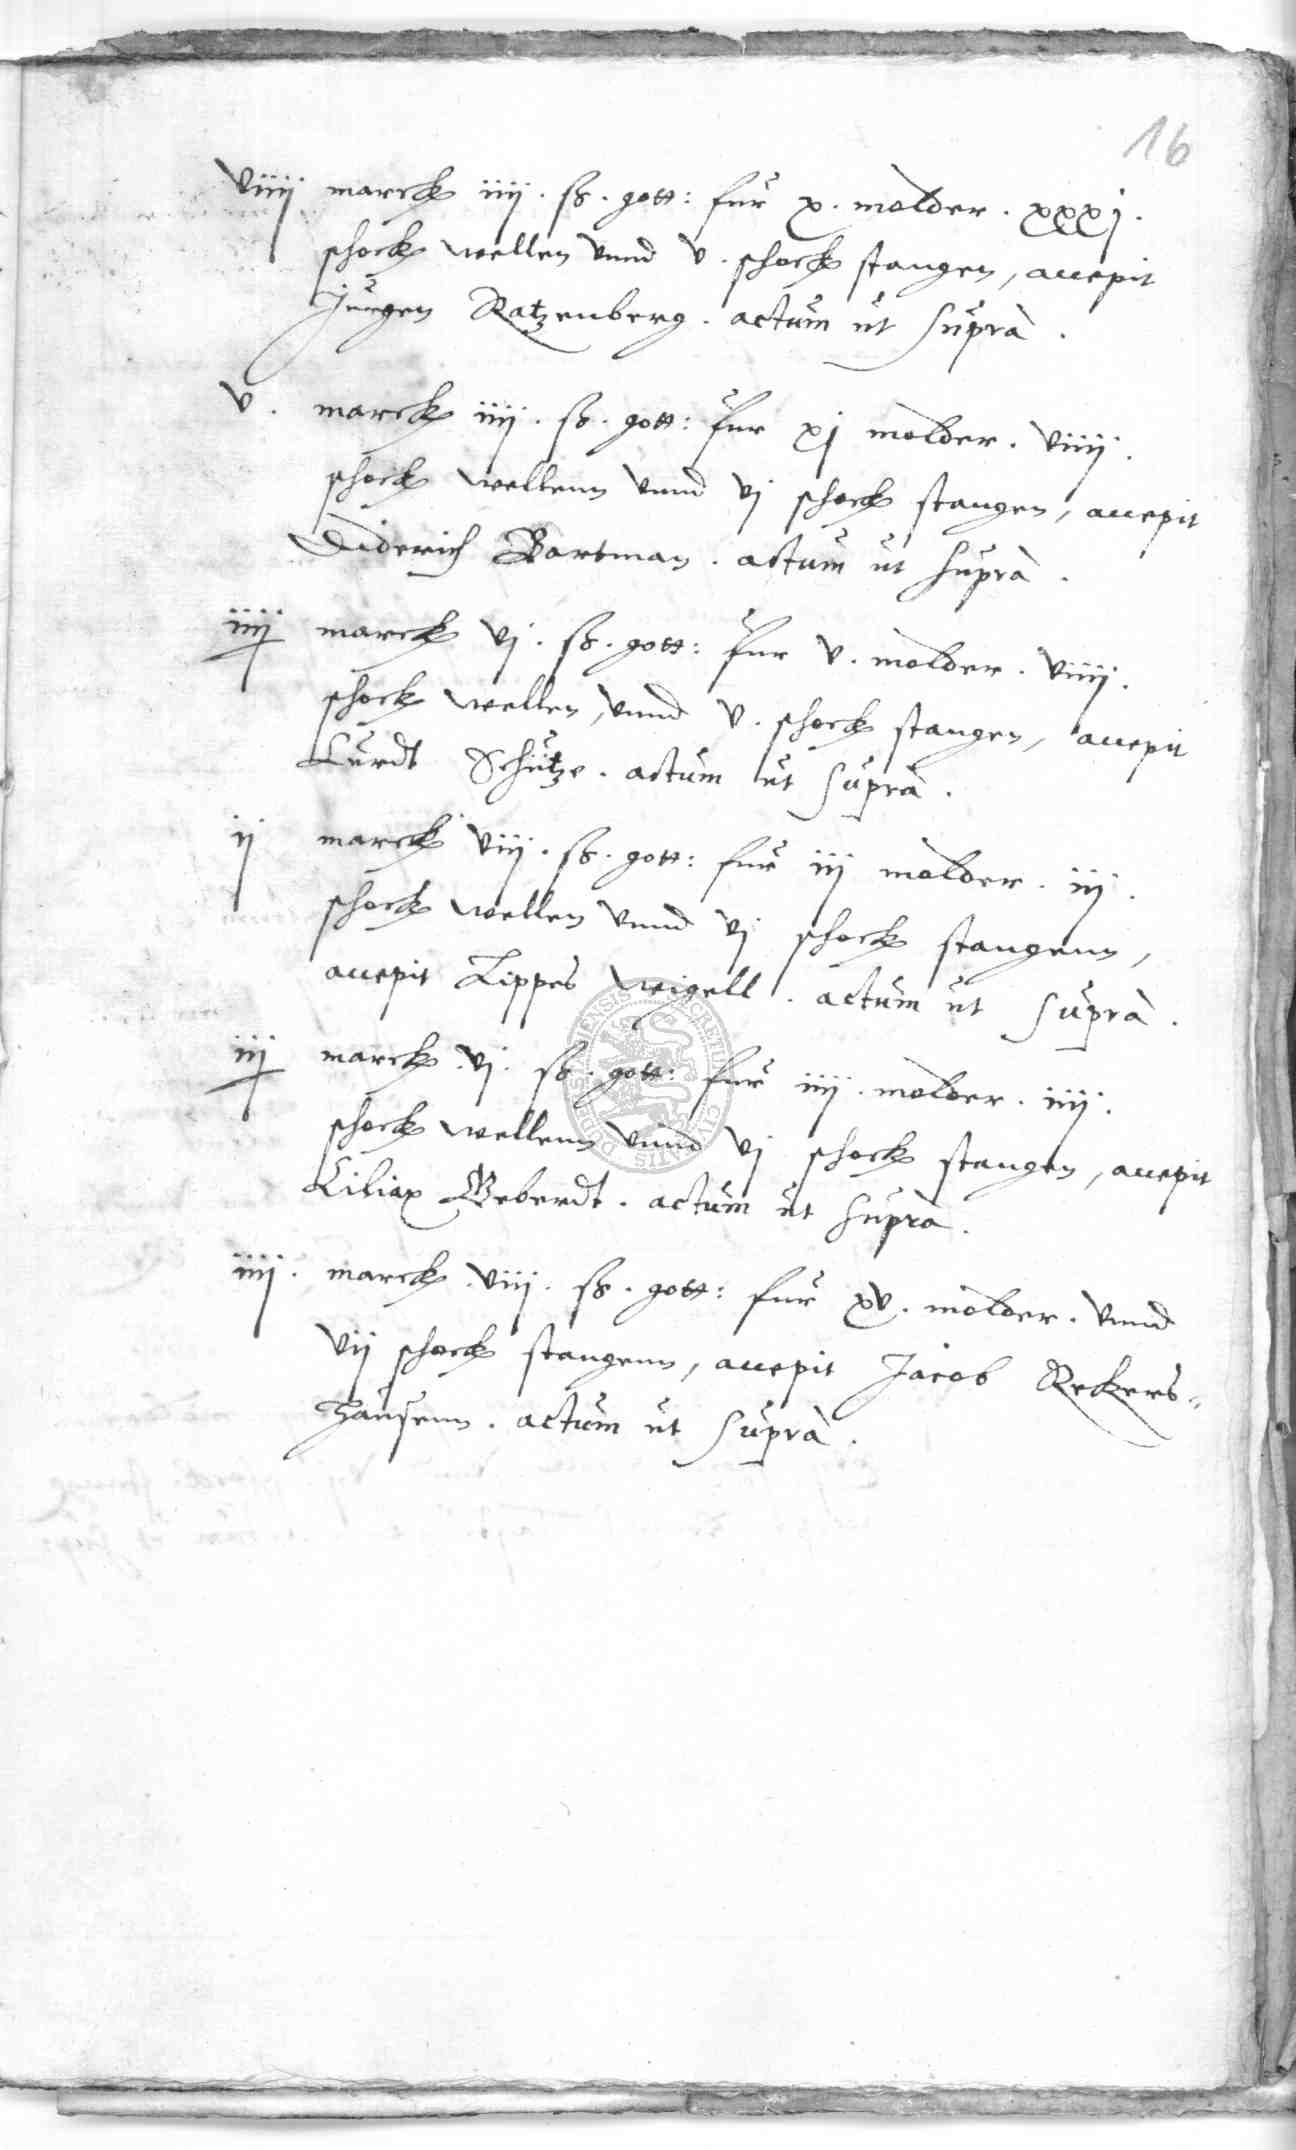 16
viiij marck iiij . ß . gott: fur x . molder . xxxj .
schock wellen vnnd v . schock stangen, accepit
Jurgen Ratzenberg . actum ut supra .
v . marck iiij . ß . gott: fur xj molder . viiij .
schock wellenn vnnd vj schock stangen, accepit
Diderich Bartman . actum ut supra .
iiij marck vj . ß . gott: fur v . molder . viiij .
schock wellen, vnnd v . schock stangen, accepit
Curdt Schutze . actum ut supra .
ij marck viij . ß . gott: fur iij molder . iij .
schock wellen vnnd vj schock stangenn,
accepit Lippes Weigell . actum ut supra .
iij marck . vj . ß . gott: fur iiij . molder . iiij .
schock wellenn vnnd vj schock stangen, accepit
Ciliax Geberdt . actum ut supra .
iiij . marck . viij . ß . gott: fur xv . molder . vnnd
vij schock stangenn, accepit Jacob Reckers-
hausenn . actum ut supra .
SECRETUM CIVITATIS